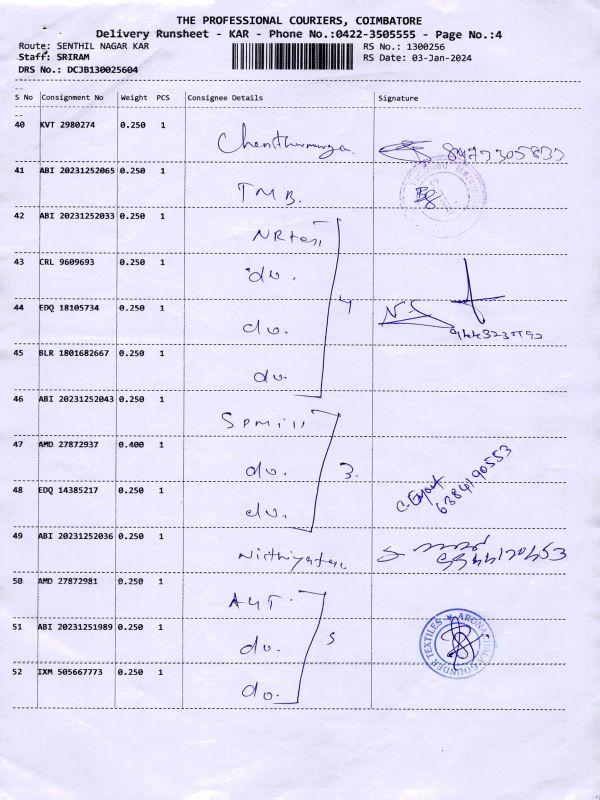 THE PROFESSIONAL COURIERS, COIMBATORE
Delivery Runsheet - KAR - Phone No.:0422-3505555 - Page No.:4
Route: SENTHIL NAGAR KAR
RS No.: 1300256
Staff: SRIRAM
RS Date: 03-Jan-2024
DRS No.: DCJB130025604
S No Consignment No Weight PCS Consignee Details Signature
40 KVT 2980274 0.250 1
41 ABI 20231252065 0.250 1 TMB.
42 ABI 20231252033 0.250 1
43 CRL 9609693 0.250 1 do.
44 EDQ 18105734 0.250 1 do. 4
45 BLR 1801682667 0.250 1 do.
46 ABI 20231252043 0.250 1
47 AMD 27872937 0.400 1 do. 3.
48 EDQ 14385217 0.250 1 do. 6384190553
49 ABI 20231252036 0.250 1
50 AMD 27872981 0.250 1
51 ABI 20231251989 0.250 1 do.
52 IXM 505667773 0.250 1 do.
TEXTILES